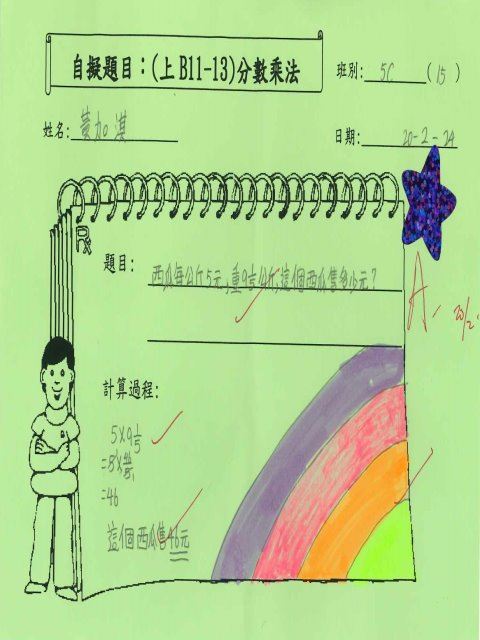 自擬題目：(上B11-13)分數乘法
班別: 5C (15)
姓名: 黃加淇
日期: 20-2-24
題目：西瓜每公斤5元，重9 1/5公斤，這個西瓜售多少元？
A-
20/2
計算過程：
5×9 1/5
=46
這個西瓜售46元